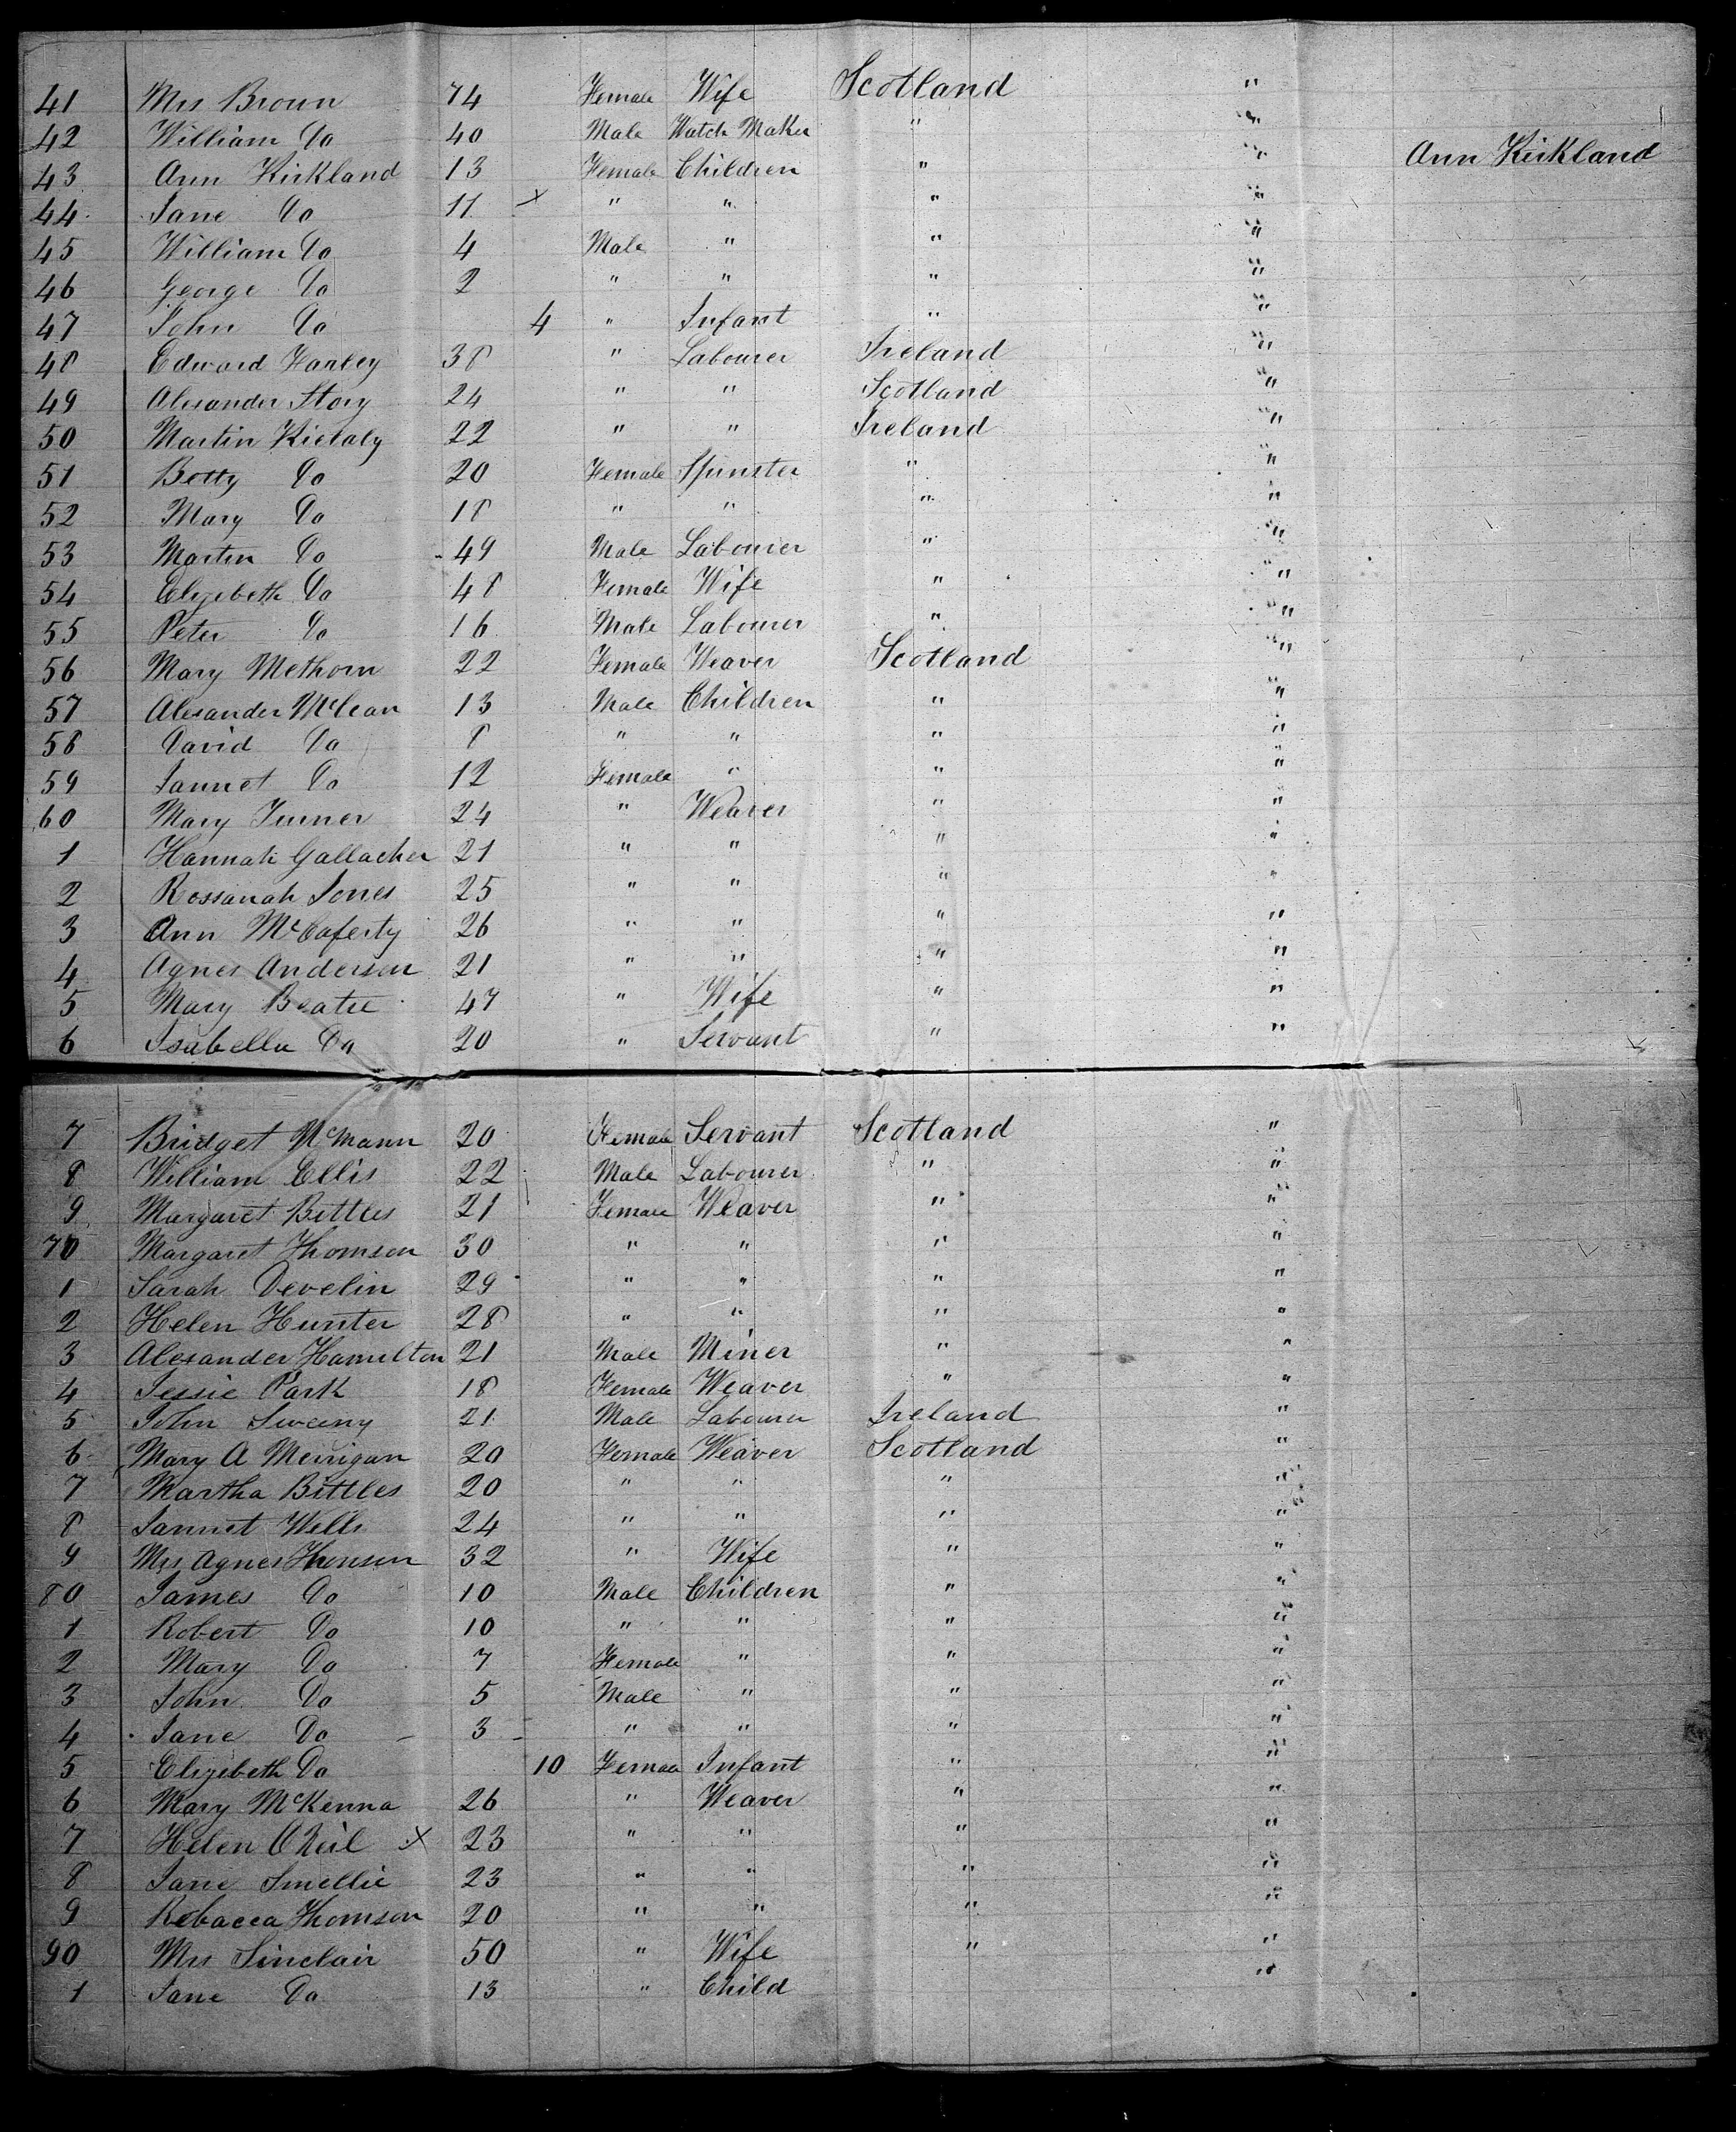 41 Mrs Brown 74 Female Wife Scotland "
42 William Do 40 Male Watch Maker " "
43 Ann Kirkland 13 Female Children " " Ann Kirkland
44 Jane Do 11 x " " " "
45 William Do 4 Male " " "
46 George Do 2 " " " "
47 John Do 4 " Infant " "
48 Edward Farley 38 " Labourer Ireland "
49 Alexander Story 24 " " Scotland "
50 Martin Kielaly 22 " " Ireland "
51 Betty Do 20 Female Spunster " "
52 Mary Do 18 " " " "
53 Martin Do 49 Male Labourer " "
54 Elizebeth Do 48 Female Wife " "
55 Peter Do 16 Male Labourer " "
56 Mary Methorn 22 Female Weaver Scotland "
57 Alexander McLean 13 Male Children " "
58 David Do 8 " " " "
59 Jannet Do 12 Female " " "
60 Mary Turner 24 " Weaver " "
1 Hannah Gallacher 21 " " " "
2 Rossanah Jones 25 " " " "
3 Ann McCaferty 26 " " " "
4 Agnes Anderson 21 " " " "
5 Mary Beatie 47 " Wife " "
6 Isabella Do 20 " Servant " "
7 Bridget McMann 20 Female Servant Scotland "
8 William Ellis 22 Male Labourer " "
9 Margaret Bittles 21 Female Weaver " "
70 Margaret Thomson 30 " " " "
1 Sarah Develin 29 " " " "
2 Helen Hunter 28 " " " "
3 Alexander Hamilton 21 Male Miner " "
4 Jessie Park 18 Female Weaver " "
5 John Sweeny 21 Male Labourer Ireland "
6 Mary A Merrigan 20 Female Weaver Scotland "
7 Martha Bittles 20 " " " "
8 Jannet Wells 24 " " " "
9 Mrs Agnes Thomson 32 " Wife " "
80 James Do 10 Male Children " "
1 Robert Do 10 " " " "
2 Mary Do 7 Female " " "
3 John Do 5 Male " " "
4 Jane Do 3 " " " "
5 Elizebeth Do 10 Female Infant " "
6 Mary McKenna 26 " Weaver " "
7 Helen ONeil x 23 " " " "
8 Jane Smellie 23 " " " "
9 Rebacca Thomson 20 " " " "
90 Mrs Sinclair 50 " Wife " "
1 Jane Do 13 " Child "